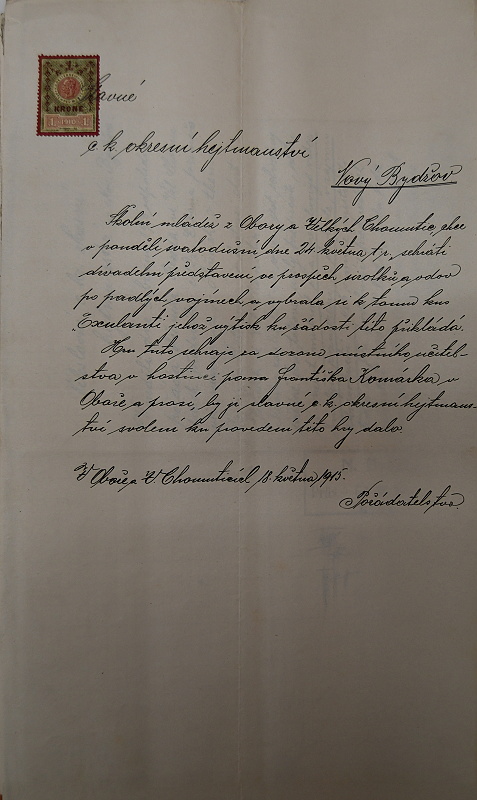 1 KRONE 1
1. 1910. 1.
Slavné
c k. okresní hejtmanství
Nový Bydžov
Školní mládež z Obory a Velkých Chomutic chce
v pondělí svatodušní dne 24 května t.r. sehráti
divadelní představení ve prospěch sirotků a vdov
po padlých vojínech a vybrala si k tomu kus
"Exulanti" jehož výtisk ku žádosti této přikládá.
Hru tuto sehraje za dozoru místního učitel-
stva v hostinci pana Františka Komárka v
Oboře a prosí, by jí slavné c. k. okresní hejtman-
ství svolení ku provedení této hry dalo.
V Oboře a V. Chomuticích 18. května 1915.
Pořádatelstvo